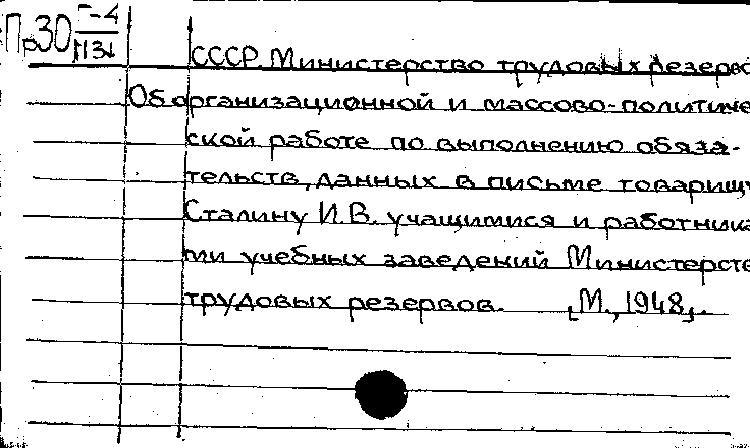 Пр30 Г-4
СССР. Министерство трудовых резерво
Об организационной и массово-политиче
ской работе по выполнению обяза-
тельств, данных в письме товарищу
Сталину И.В. учащимися и работника
ми учебных заведений Министерств
трудовых резервов. [М., 1948].